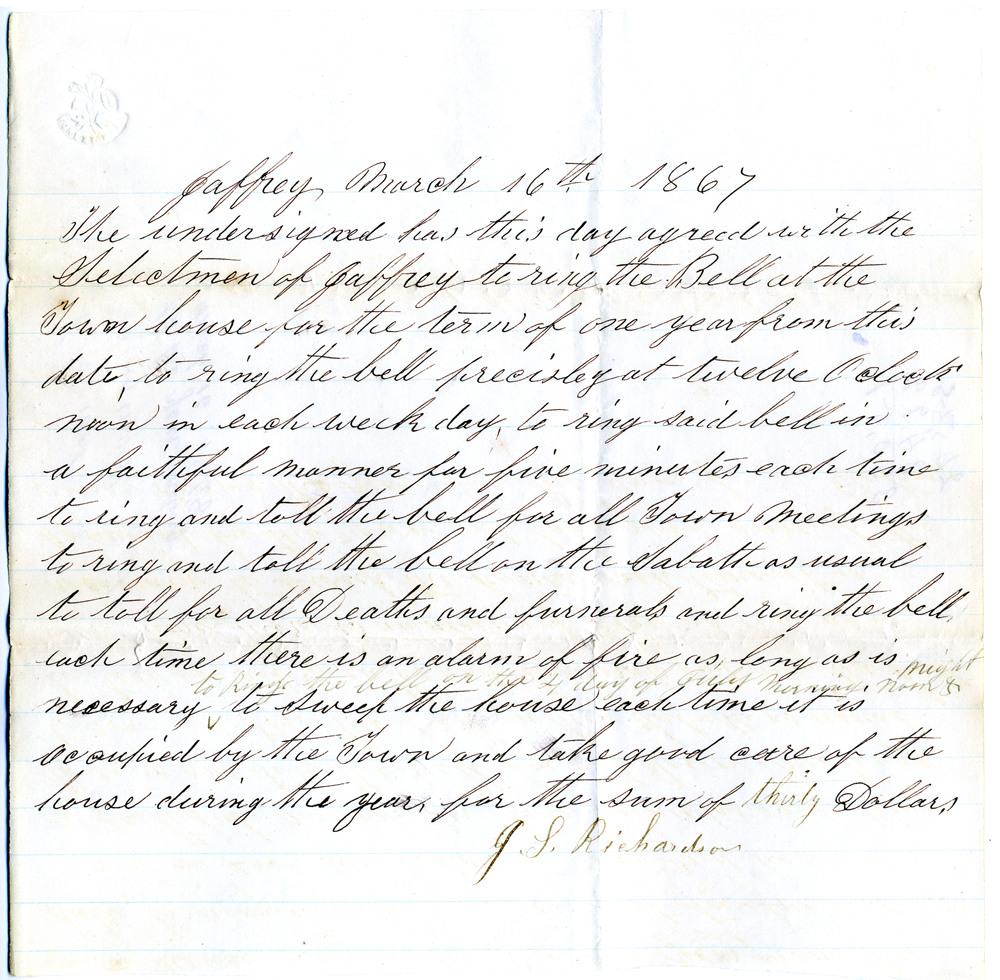 Jaffrey, March 16th 1867
The undersigned has this day agreed with the
Selectmen of Jaffrey to ring the Bell at the
Town house for the term of one year from this
date, to ring the bell precisley at twelve O clock
noon in each week day, to ring said bell in
a faithful manner for five minutes each time
to ring and toll the bell for all Town Meetings
to ring and toll the bell on the Sabath as usual
to toll for all Deaths and furnerals and ring the bell
each time there is an alarm of fire as long as is
to ring the bell on the 4 day of July Morning, Noon & night
necessary to sweep the house each time it is
occupied by the Town and take good care of the
house during the year, for the sum of thirty Dollars
J. S. Richardson